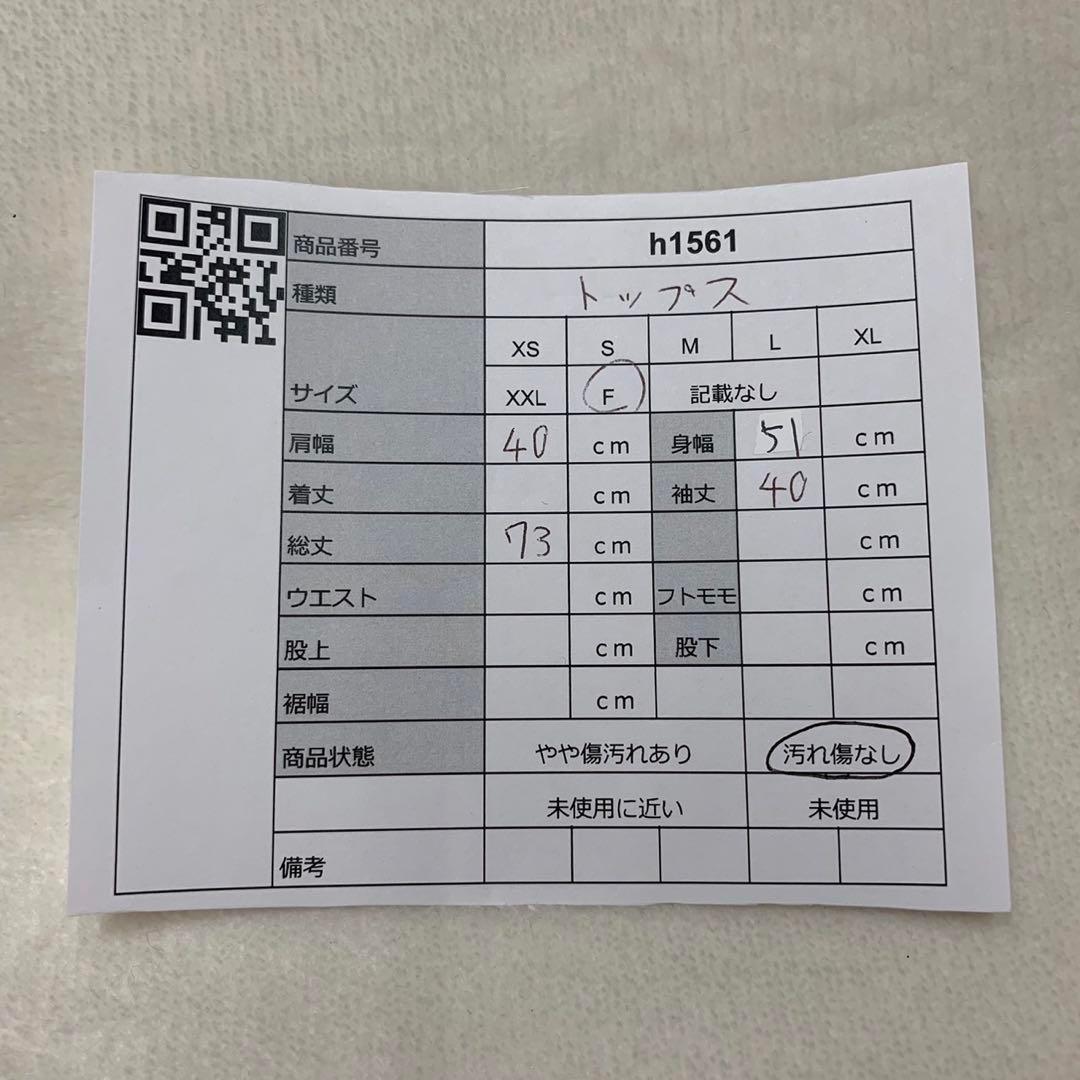 商品番号 h1561
種類 トップス
XS S M L XL
サイズ XXL F 記載なし
肩幅 40 cm 身幅 51 cm
着丈 cm 袖丈 40 cm
総丈 73 cm cm
ウエスト cm フトモモ cm
股上 cm 股下 cm
裾幅 cm
商品状態 やや傷汚れあり 汚れ傷なし
未使用に近い 未使用
備考